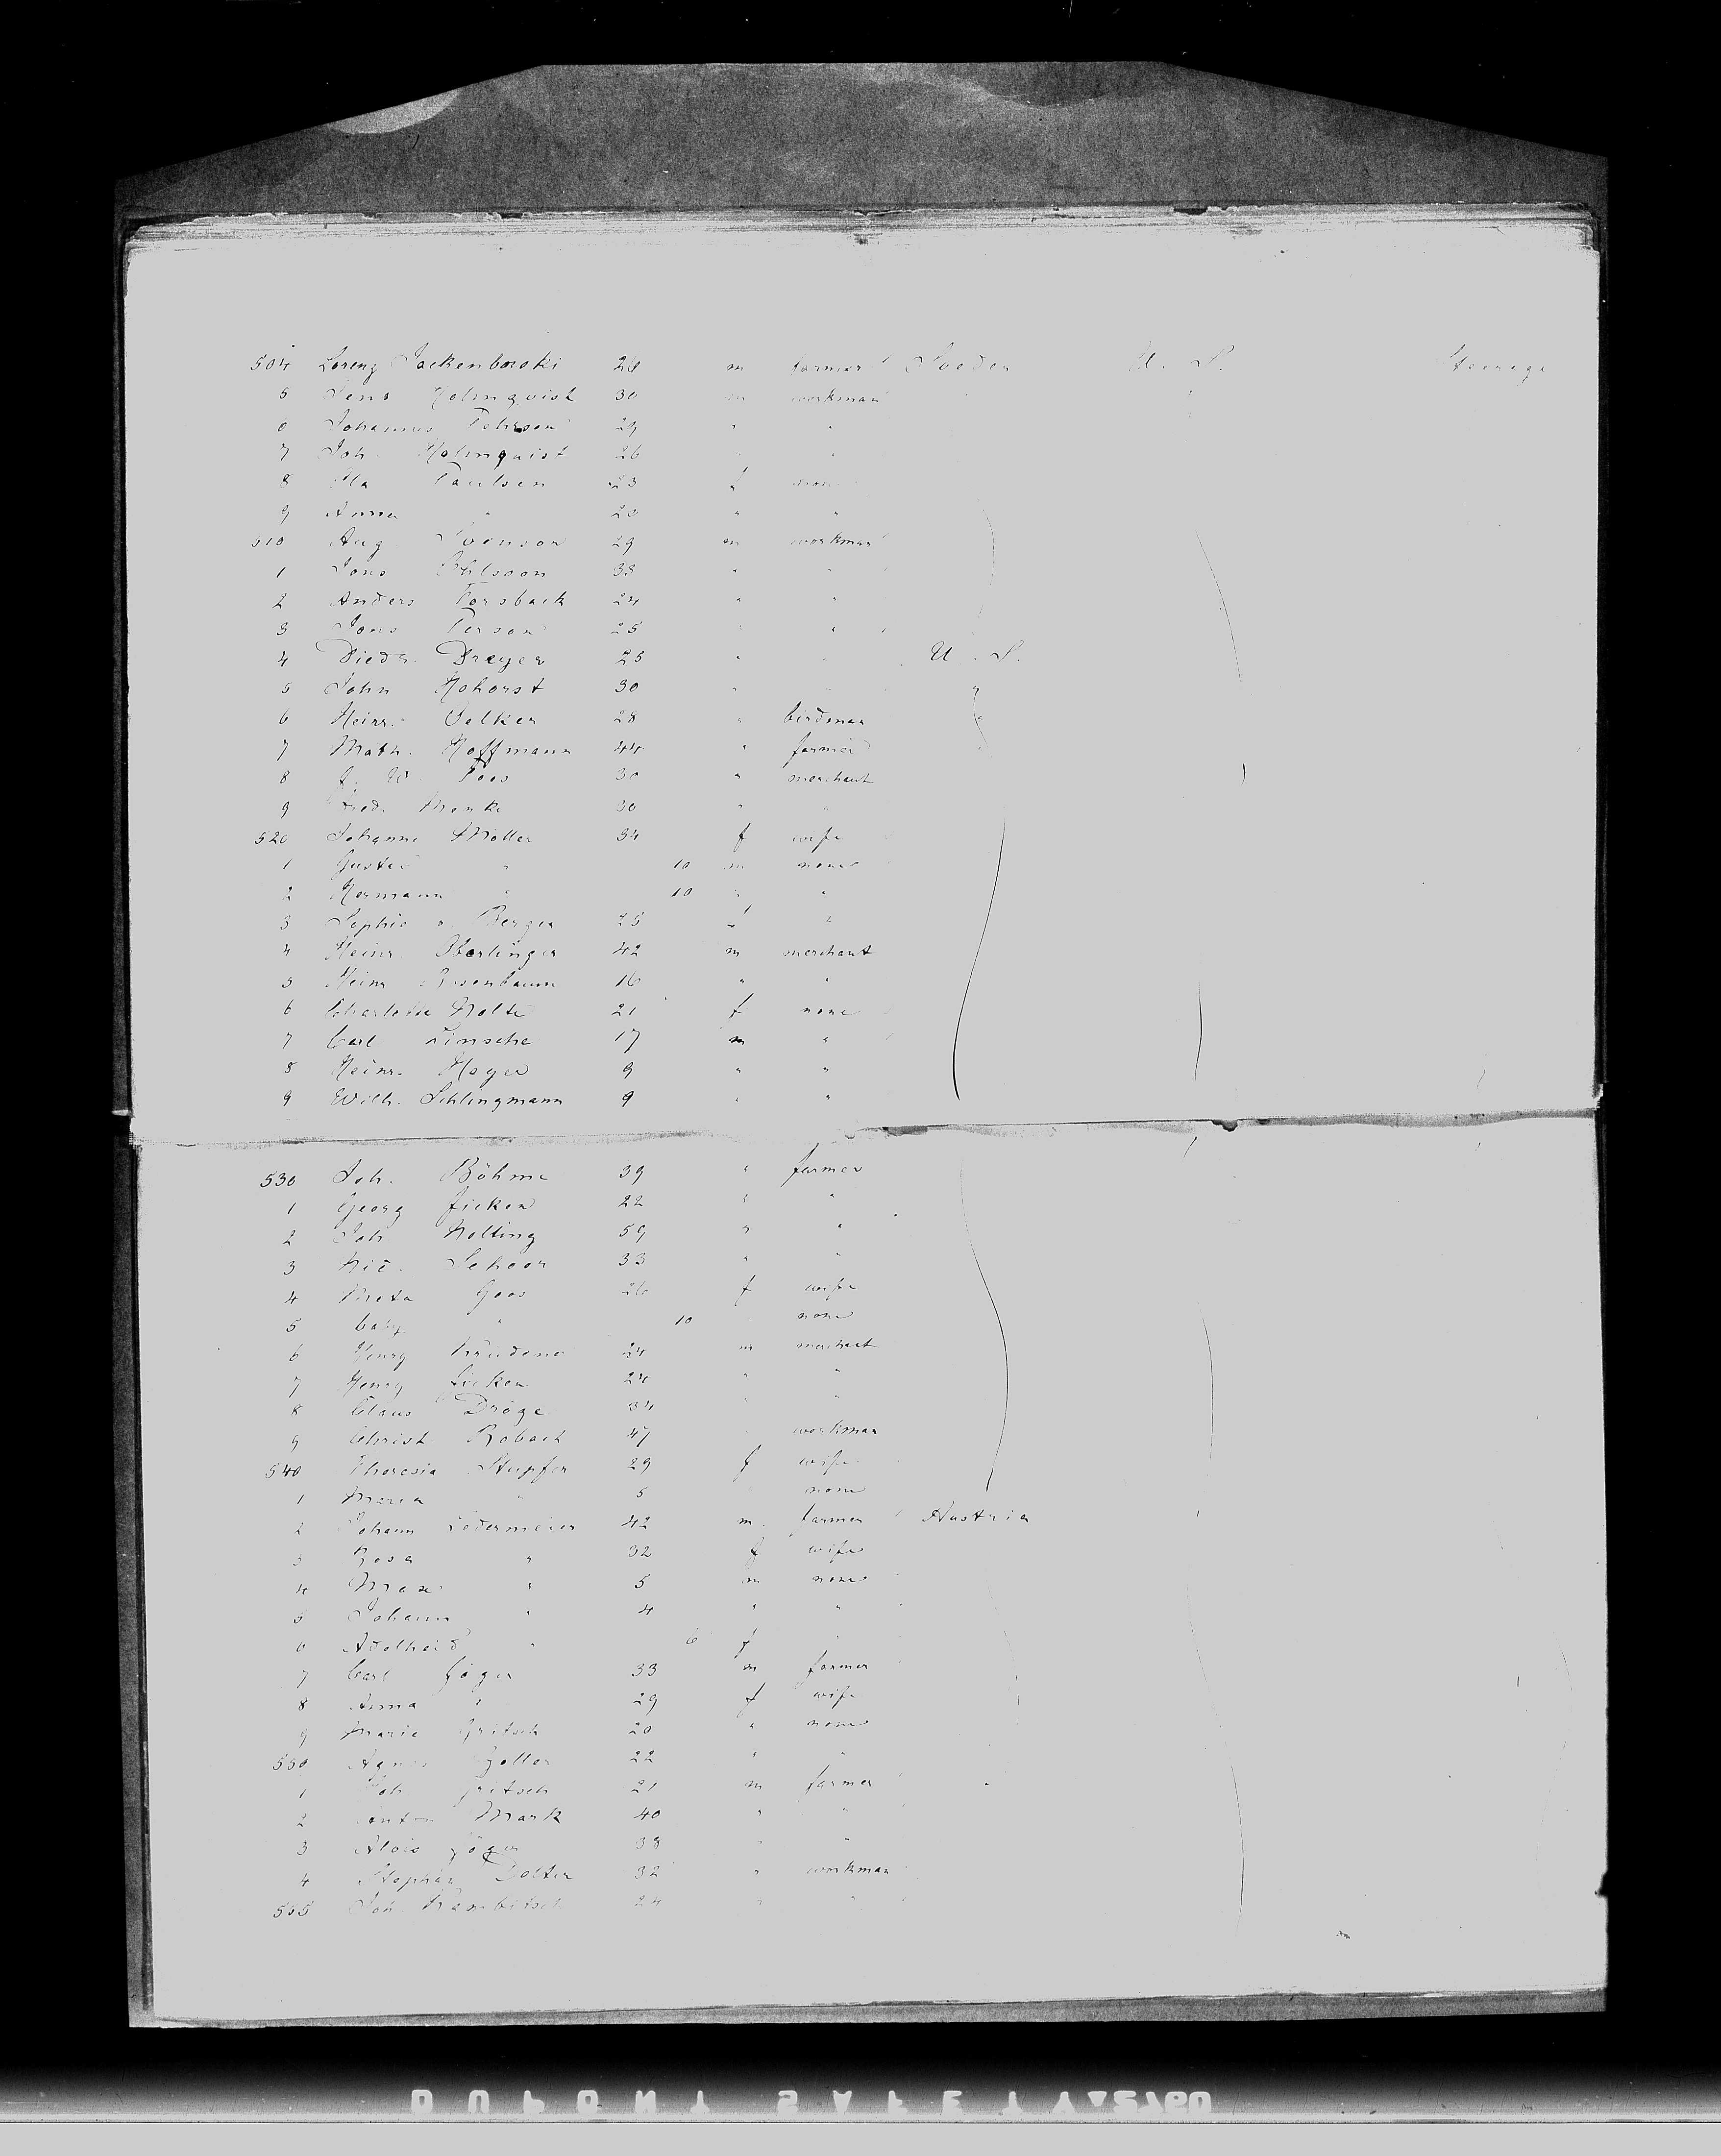 504 Lorenz Jackenboroki 26 m farmer Sweden U. S. Steerage
5 Jens Holmqvist 30 m workman
6 Johannes Pehrson 29 " "
7 Joh. Holmquist 26 " "
8 Ola Paulsen 23 f none
9 Anna " 20 " "
510 Aug Svenson 29 m workman
1 Jons Ohlsson 38 " "
2 Anders Forsback 24 " "
3 Jons Person 25 " "
4 Diedr. Dreyer 25 " " U. S.
5 John Hohorst 30 " " "
6 Heinr. Oelker 28 " birdman "
7 Math. Hoffmann 44 " farmer "
8 J. W. Poos 30 " merchant
9 Fred. Menke 30 " "
520 Johanne Möller 34 f wife
1 Gustav " 10 m none
2 Hermann " 10 " "
3 Sophie v. Bergen 25 f "
4 Heinr. Oberlinger 42 m merchant
5 Heinr. Rosenbaum 16 " "
6 Charlotte Nolte 21 f none
7 Carl Finsche 17 m "
8 Heinr. Hoyer 9 " "
9 Wilh. Schlingmann 9 " "
530 Joh. Böhme 39 " farmer
1 Georg Ficken 22 " "
2 Joh Nolting 59 " "
3 Nic. Schoon 33 " "
4 Meta Goos 26 f wife
5 baby " 10 none
6 Henry 24 m merchant
7 Henry Ficken 24 " "
8 Claus Dröge 34 " "
9 Christ. Robach 47 " workman
540 Theresia Stupfer 29 f wife
1 Maria " 5 " none
2 Johann Ledermeier 42 m farmer Austria
3 Rosa " 32 f wife
4 Max " 5 m none
5 Johann " 4 " "
6 Adelheid " 6 f "
7 Carl Jäger 33 m farmer
8 Anna " 29 f wife
9 Marie Gritsch 20 " none
550 Agnes Zoller 22 " "
1 Joh Gritsch 21 m farmer
2 Anton Mark 40 " "
3 Alois 38 " "
4 Stephan Dolter 32 " workman
555 Joh. Krambitsch 24 " "
DUPONT SAFETY